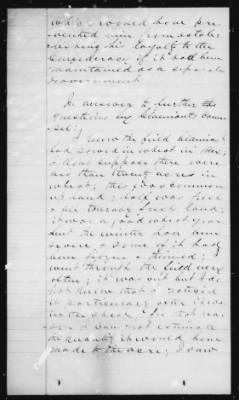 which would have pre-
vented him from establ
ishing his loyalty to the
Confederacy if it had been
maintained as a separate
government
In answer to further
questions by Claimants coun
sel:
I knew the field claimant
had sowed in wheat in
I dont suppose there were
less than twenty acres in
wheat; this was common
up land; half was
fresh land;
it was a good wheat year
but the winter had been
severe, & some of it had
been & thinned; I
went through the field very
often; it was cut but I do
not know that I noticed
it particularly after it was
in the shock. For that rea
son I can not estimate
the quantity it would have
made to the acre; I saw